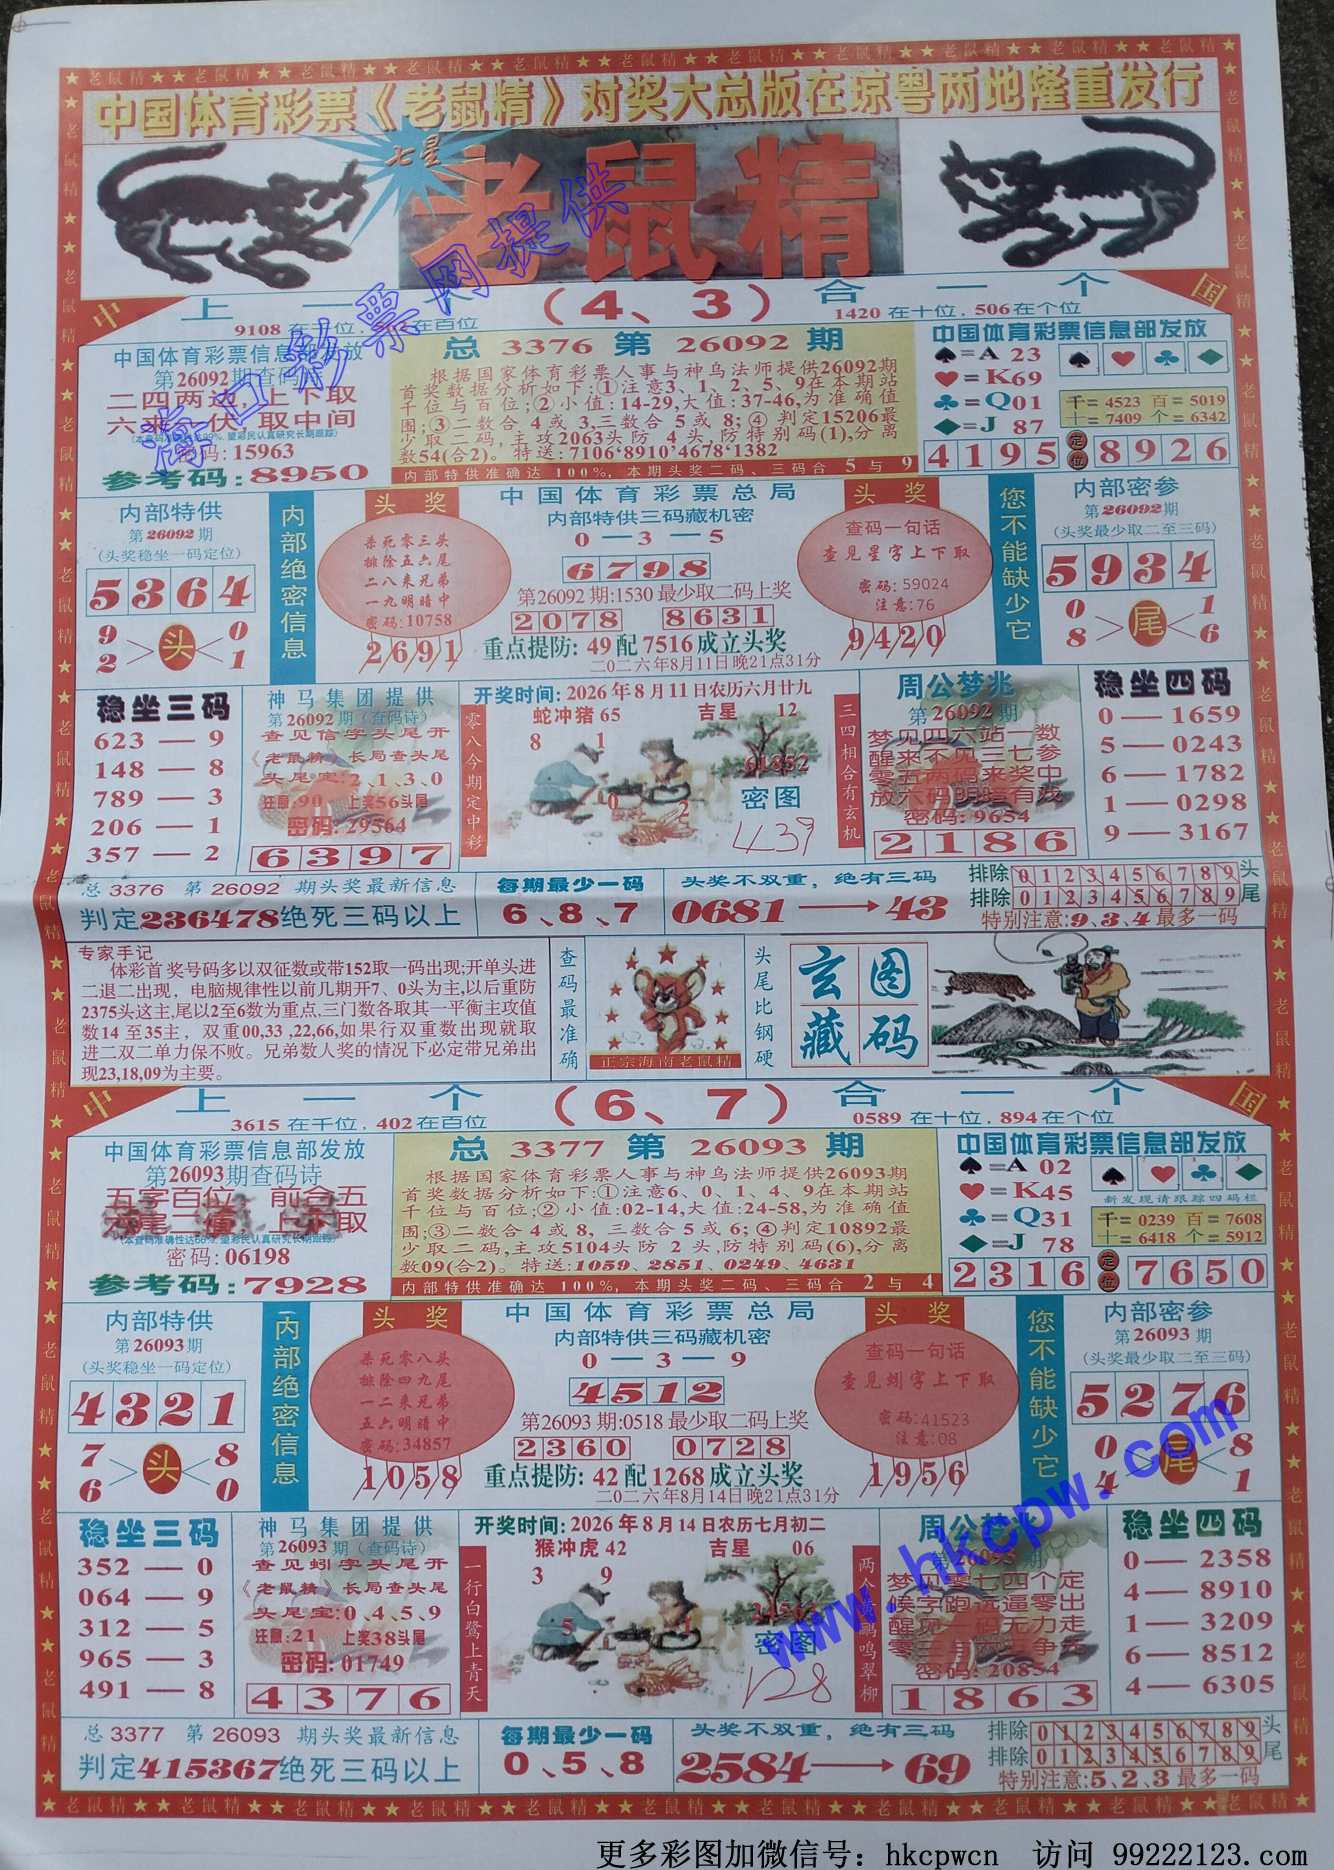 中国体育彩票《老鼠精》对奖大总版在琼粤两地隆重发行
七星
老鼠精
海口彩票网提供
中 上一个 (4、3) 合一个 国
1420在十位,506在个位
中国体育彩票信息部发放
第26092期查码诗
二四两边,上下取
密码:15963
参考码:8950
总 3376 第 26092 期
根据国家体育彩票人事与神鸟法师提供26092期
首奖数据分析如下:①注意3、1、2、5、9在本期站
千位与百位;②小值:14-29,大值:37-46,为准确值
围;③二数合4或3,三数合5或8;④判定15206最
少取二码,主攻2063头防4头,防特别码(1),分离
数54(合2)。特送:7106*8910*4678*1382
内部特供准确达100%,本期头奖二码、三码合5与9
中国体育彩票信息部发放
♠=A 23
♥=K69
♣=Q01
♦=J 87
千=4523 百=5019
十=7409 个=6342
4195 定位 8926
内部特供
第26092期
(头奖稳坐一码定位)
5364
9 0
头
2 1
内部绝密信息
头奖
杀死零三头
排除五六尾
二八来兄弟
一九明暗中
密码:10758
2691
中国体育彩票总局
内部特供三码藏机密
0—3—5
6798
第26092期:1530最少取二码上奖
2078 8631
重点提防:49配7516成立头奖
二〇二六年8月11日晚21点31分
头奖
查码一句话
查见星字上下取
密码:59024
注意:76
9420
您不能缺少它
内部密参
第26092期
(头奖最少取二至三码)
5934
0 1
尾
8 6
稳坐三码
623—9
148—8
789—3
206—1
357—2
神马集团提供
第26092期(查码诗)
查见信字头尾开
《老鼠精》长局查头尾
头尾宝:2、1、3、0
狂鼠:90 上奖56头尾
密码:29564
6397
零八今期定中彩
开奖时间:2026年8月11日农历六月廿九
蛇冲猪65 吉星 12
8 1
61852
0 2
密图
439
三四相合有玄机
周公梦兆
第26092期
梦见四六站一数
醒来不见三七参
零五两码来奖中
放六码明暗有戏
密码:9654
2186
稳坐四码
0—1659
5—0243
6—1782
1—0298
9—3167
总 3376 第 26092 期头奖最新信息
判定236478绝死三码以上
每期最少一码
6、8、7
头奖不双重,绝有三码
0681→43
排除0123456789头
排除0123456789尾
特别注意:9、3、4最多一码
专家手记
体彩首奖号码多以双征数或带152取一码出现;开单头进
二退二出现,电脑规律性以前几期开7、0头为主,以后重防
2375头这主,尾以2至6数为重点,三门数各取其一平衡主攻值
数14至35主,双重00,33,22,66,如果行双重数出现就取
进二双二单力保不败。兄弟数人奖的情况下必定带兄弟出
现23,18,09为主要。
查码最准确
正宗海南老鼠精
头尾比钢硬
玄图藏码
中 上一个 (6、7) 合一个 国
3615在千位,402在百位
0589在十位,894在个位
中国体育彩票信息部发放
第26093期查码诗
密码:06198
参考码:7928
总 3377 第 26093 期
根据国家体育彩票人事与神鸟法师提供26093期
首奖数据分析如下:①注意6、0、1、4、9在本期站
千位与百位;②小值:02-14,大值:24-58,为准确值
围;③二数合4或8,三数合5或6;④判定10892最
少取二码,主攻5104头防2头,防特别码(6),分离
数09(合2)。特送:1059、2851、0249、4631
内部特供准确达100%,本期头奖二码、三码合2与4
中国体育彩票信息部发放
♠=A 02
♥=K45
♣=Q31
♦=J 78
新发现请跟踪四码栏
千=0239 百=7608
十=6418 个=5912
2316 定位 7650
内部特供
第26093期
(头奖稳坐一码定位)
4321
7 8
头
6 0
内部绝密信息
头奖
杀死零八头
排除四九尾
一二来兄弟
五六明暗中
密码:34857
1058
中国体育彩票总局
内部特供三码藏机密
0—3—9
4512
第26093期:0518最少取二码上奖
2360 0728
重点提防:42配1268成立头奖
二〇二六年8月14日晚21点31分
头奖
查码一句话
查见蚓字上下取
密码:41523
注意:08
1956
您不能缺少它
内部密参
第26093期
(头奖最少取二至三码)
5276
0 8
尾
4 1
稳坐三码
352—0
064—9
312—5
965—3
491—8
神马集团提供
第26093期(查码诗)
查见蚓字头尾开
《老鼠精》长局查头尾
头尾宝:0、4、5、9
狂鼠:21 上奖38头尾
密码:01749
4376
一行白鹭上青天
开奖时间:2026年8月14日农历七月初二
猴冲虎42 吉星 06
3 9
5
密图
128
周公梦兆
第26093期
梦见零七四个定
候字跑远逼零出
密码:20854
1863
稳坐四码
0—2358
4—8910
1—3209
6—8512
4—6305
www.hkcpw.com
总 3377 第 26093 期头奖最新信息
判定415367绝死三码以上
每期最少一码
0、5、8
头奖不双重,绝有三码
2584→69
排除0123456789头
排除0123456789尾
特别注意:5、2、3最多一码
更多彩图加微信号: hkcpwcn 访问 99222123.com